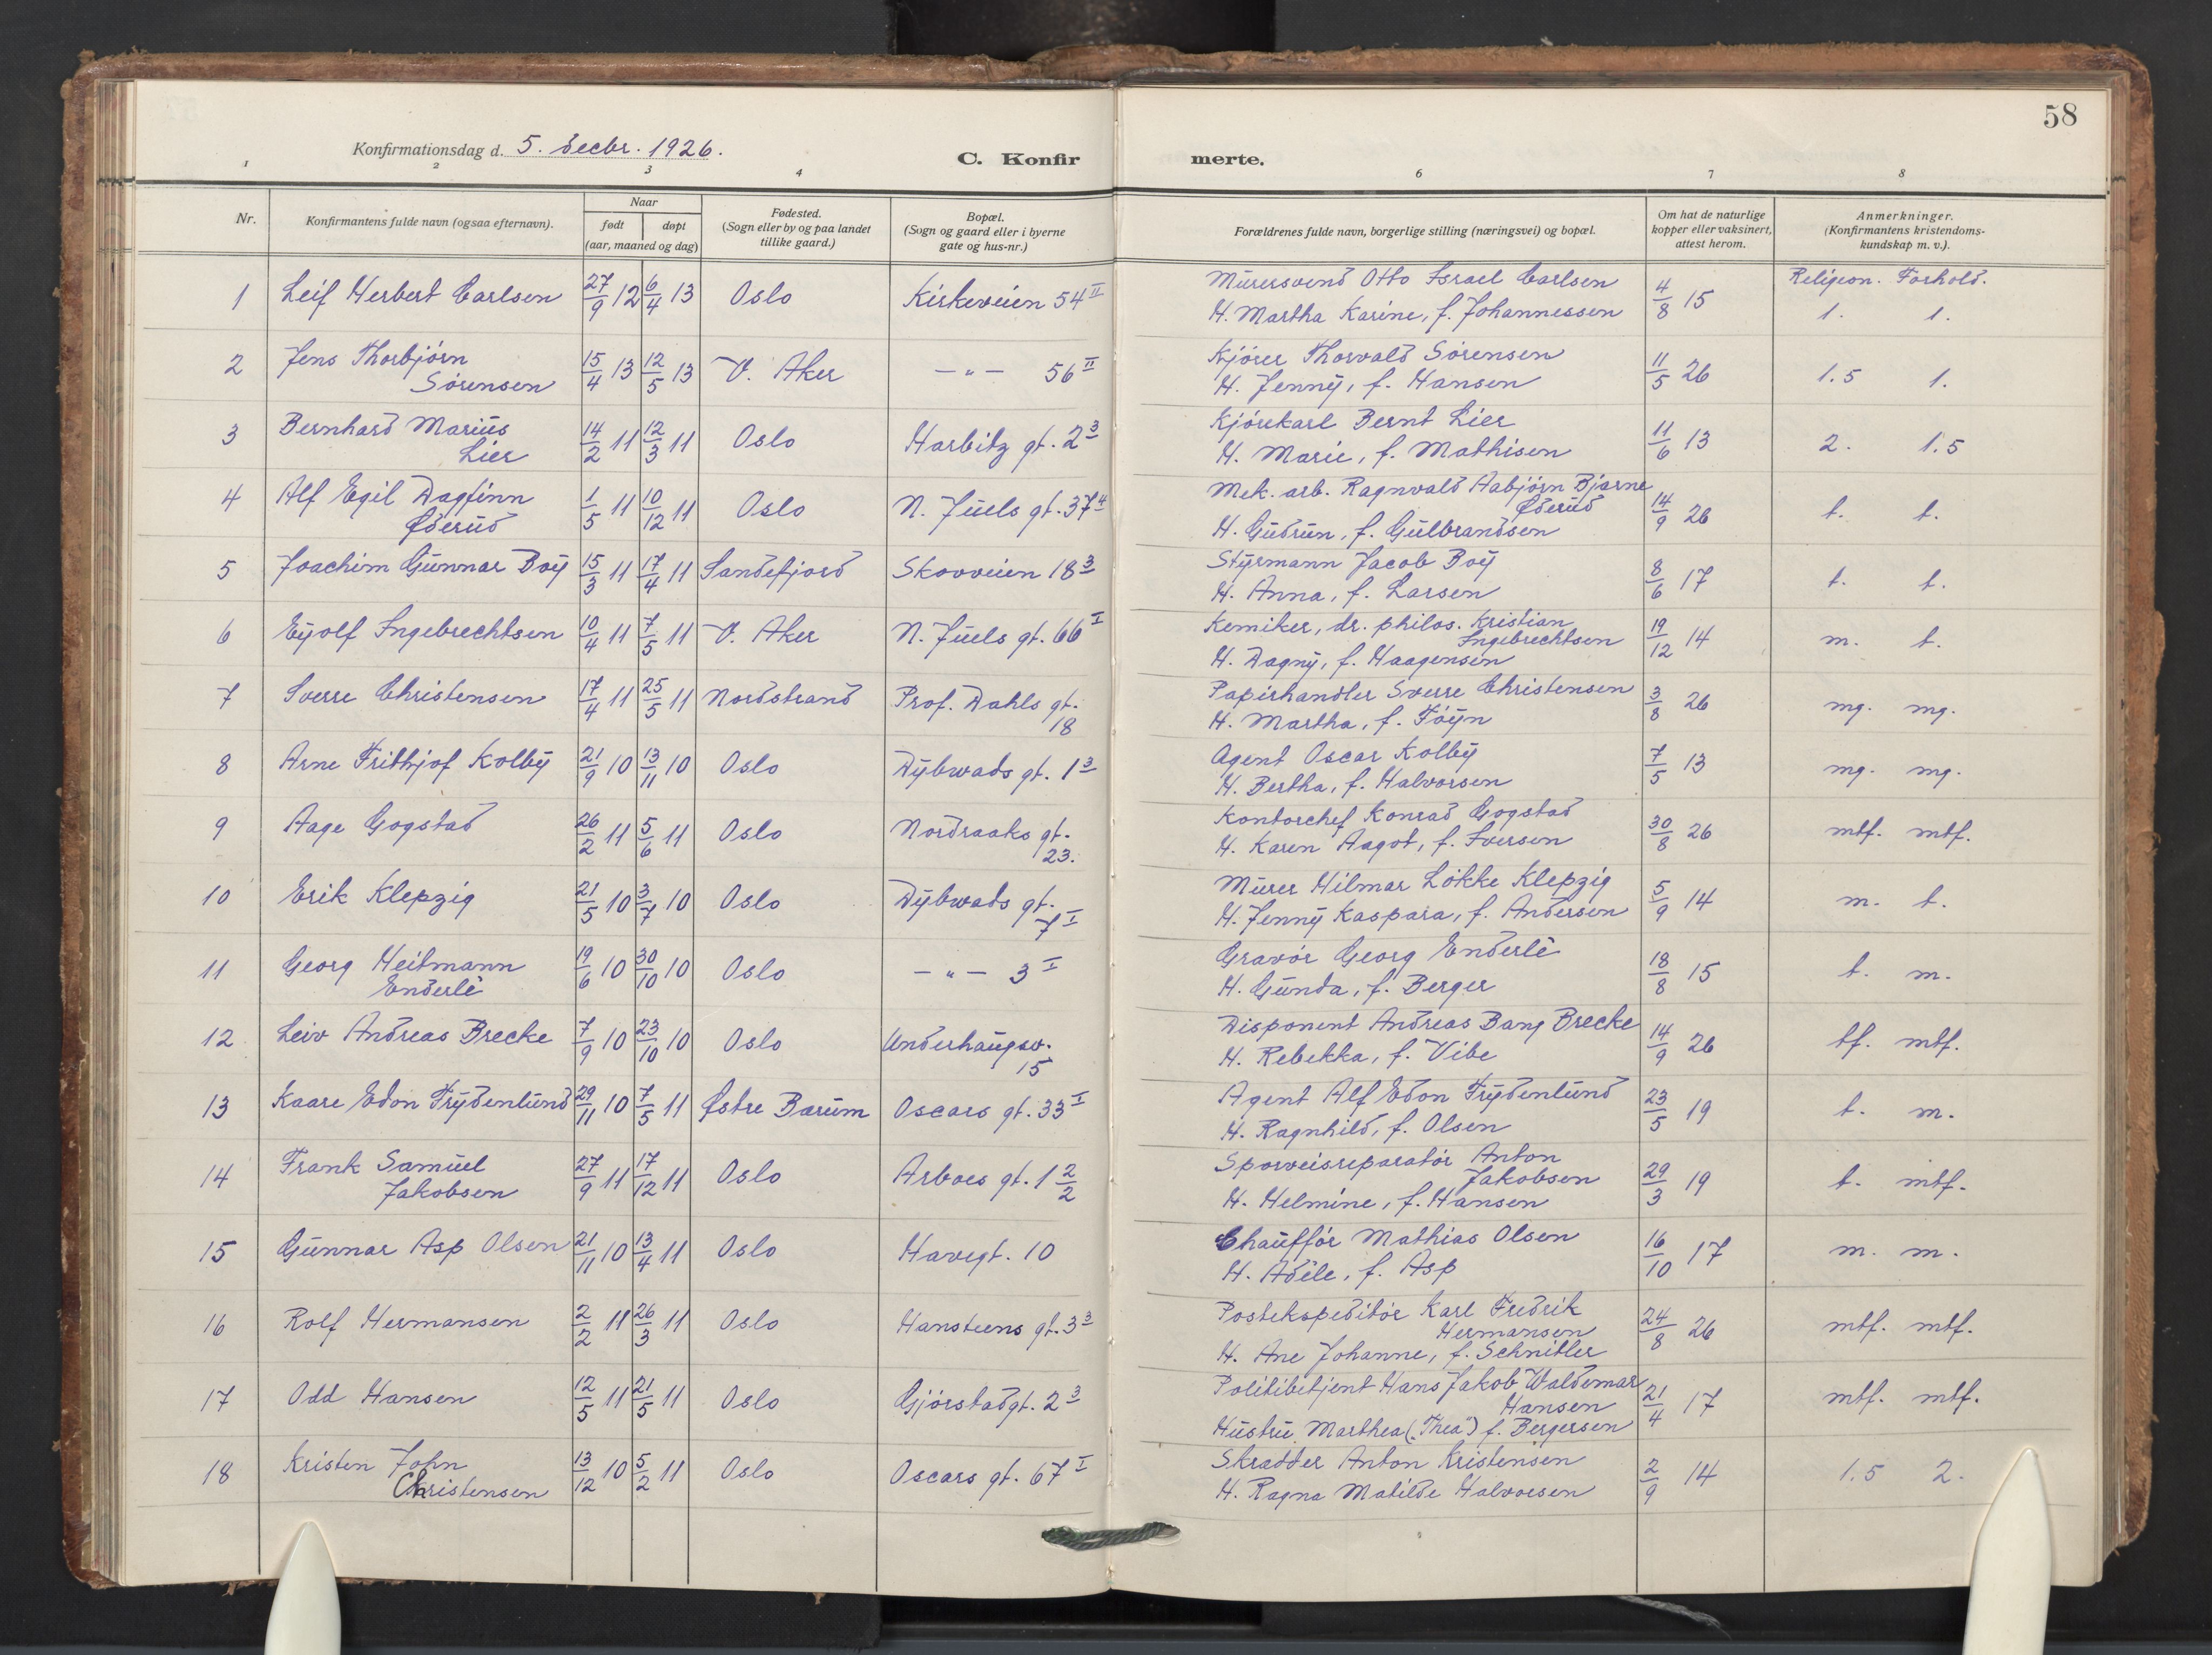 58
Konfirmationsdag d. 5. decbr. 1926.
C. Konfir merte.
1 2 3 4 6 7 8
Nr.
Konfirmantens fulde navn (ogsaa efternavn).
Naar
født døpt
(aar, maaned og dag)
Fødested.
(Sogn eller by og paa landet
tillike gaard.)
Bopæl.
(Sogn og gaard eller i byerne
gate og hus-nr.)
Forældrenes fulde navn, borgerlige stilling (næringsvei) og bopæl.
Om hat de naturlige
kopper eller vaksinert,
attest herom.
Anmerkninger.
(Konfirmantens kristendoms-
kundskap m. v.).
Religion. Forhold.
1 Leif Herbert Carlsen 27/9 12 6/4 13 Oslo Kirkeveien 54 II
Murersvend Otto Israel Carlsen
H. Martha Karine, f. Johannessen
4/8 15 1. 1.
2 Jens Thorbjørn
Sørensen
15/4 13 12/5 13 V. Aker -"- 56 II
Kjører Thorvald Sørensen
H. Jenny, f. Hansen
11/5 26 1.5 1.
3 Bernhard Marius
Lier
14/2 11 12/3 11 Oslo Harbitz gt. 2 3
Kjørekarl Bernt Lier
H. Marie, f. Mathisen
11/6 13 2. 1.5
4 Alf Egil Dagfinn
Øderud
1/5 11 10/12 11 Oslo N. Juels gt. 37 4
Mek. arb. Ragnvald Aabjørn Bjarne
Øderud
H. Gudrun, f. Gulbrandsen
14/9 26 t. t.
5 Joachim Gunnar Boy 15/3 11 17/4 11 Sandefjord Skovveien 18 3
Styrmann Jacob Boy
H. Anna, f. Larsen
8/6 17 t. t.
6 Eyolf Ingebrechtsen 10/4 11 7/5 11 V. Aker N. Juels gt. 66 I
Kemiker, dr. philos. Kristian
Ingebrechtsen
H. Dagny, f. Haagensen
19/12 14 m. t.
7 Sverre Christensen 17/4 11 25/5 11 Nordstrand Prof. Dahls gt.
18
Papirhandler Sverre Christensen
H. Martha, f. Føyn
3/8 26 mg. mg.
8 Arne Frithjof Kolby 21/9 10 13/11 10 Oslo Dybwads gt. 1 3
Agent Oscar Kolby
H. Bertha, f. Halvorsen
7/5 13 mg. mg.
9 Aage Gogstad 26/2 11 5/6 11 Oslo Nordraaks gt.
23.
Kontorchef Konrad Gogstad
H. Karen Aagot, f. Iversen
30/8 26 mtf. mtf.
10 Erik Klepzig 21/5 10 3/7 10 Oslo Dybwads gt.
7 I
Murer Hilmar Løkke Klepzig
H. Jenny Kaspara, f. Andersen
5/9 14 m. t.
11 Georg Heitmann
Enderle
19/6 10 30/10 10 Oslo -"- 3 I
Gravør Georg Enderle
H. Gunda, f. Berger
18/8 15 t. m.
12 Leiv Andreas Brecke 7/9 10 23/10 10 Oslo Underhaugsv.
15
Disponent Andreas Bang Brecke
H. Rebekka, f. Vibe
14/9 26 tf. mtf.
13 Kaare Edon Frydenlund 29/11 10 7/5 11 Østre Bærum Oscars gt. 33 I
Agent Alf Edon Frydenlund
H. Ragnhild, f. Olsen
23/5 19 t. m.
14 Frank Samuel
Jakobsen
27/9 11 17/12 11 Oslo Arboes gt. 1 2/2
Sporveisreparatør Anton
Jakobsen
H. Helmine, f. Hansen
29/3 19 t. mtf.
15 Gunnar Asp Olsen 21/11 10 13/4 11 Oslo Havegt. 10
Chauffør Mathias Olsen
H. Adele, f. Asp
16/10 17 m. m.
16 Rolf Hermansen 2/2 11 26/3 11 Oslo Hansteens gt. 3 3
Postekspeditør Karl Fredrik
Hermansen
H. Ane Johanne, f. Schnitler
24/8 26 mtf. mtf.
17 Odd Hansen 12/5 11 21/5 11 Oslo Gjørstadgt. 2 3
Politibetjent Hans Jakob Waldemar
Hansen
Hustru Marthea („Thea") f. Bergersen
21/4 17 mtf. mtf.
18 Kristen John
Christensen
13/12 10 5/2 11 Oslo Oscars gt. 67 I
Skrædder Anton Kristensen
H. Ragna Matilde Halvorsen
2/9 14 1.5 2.